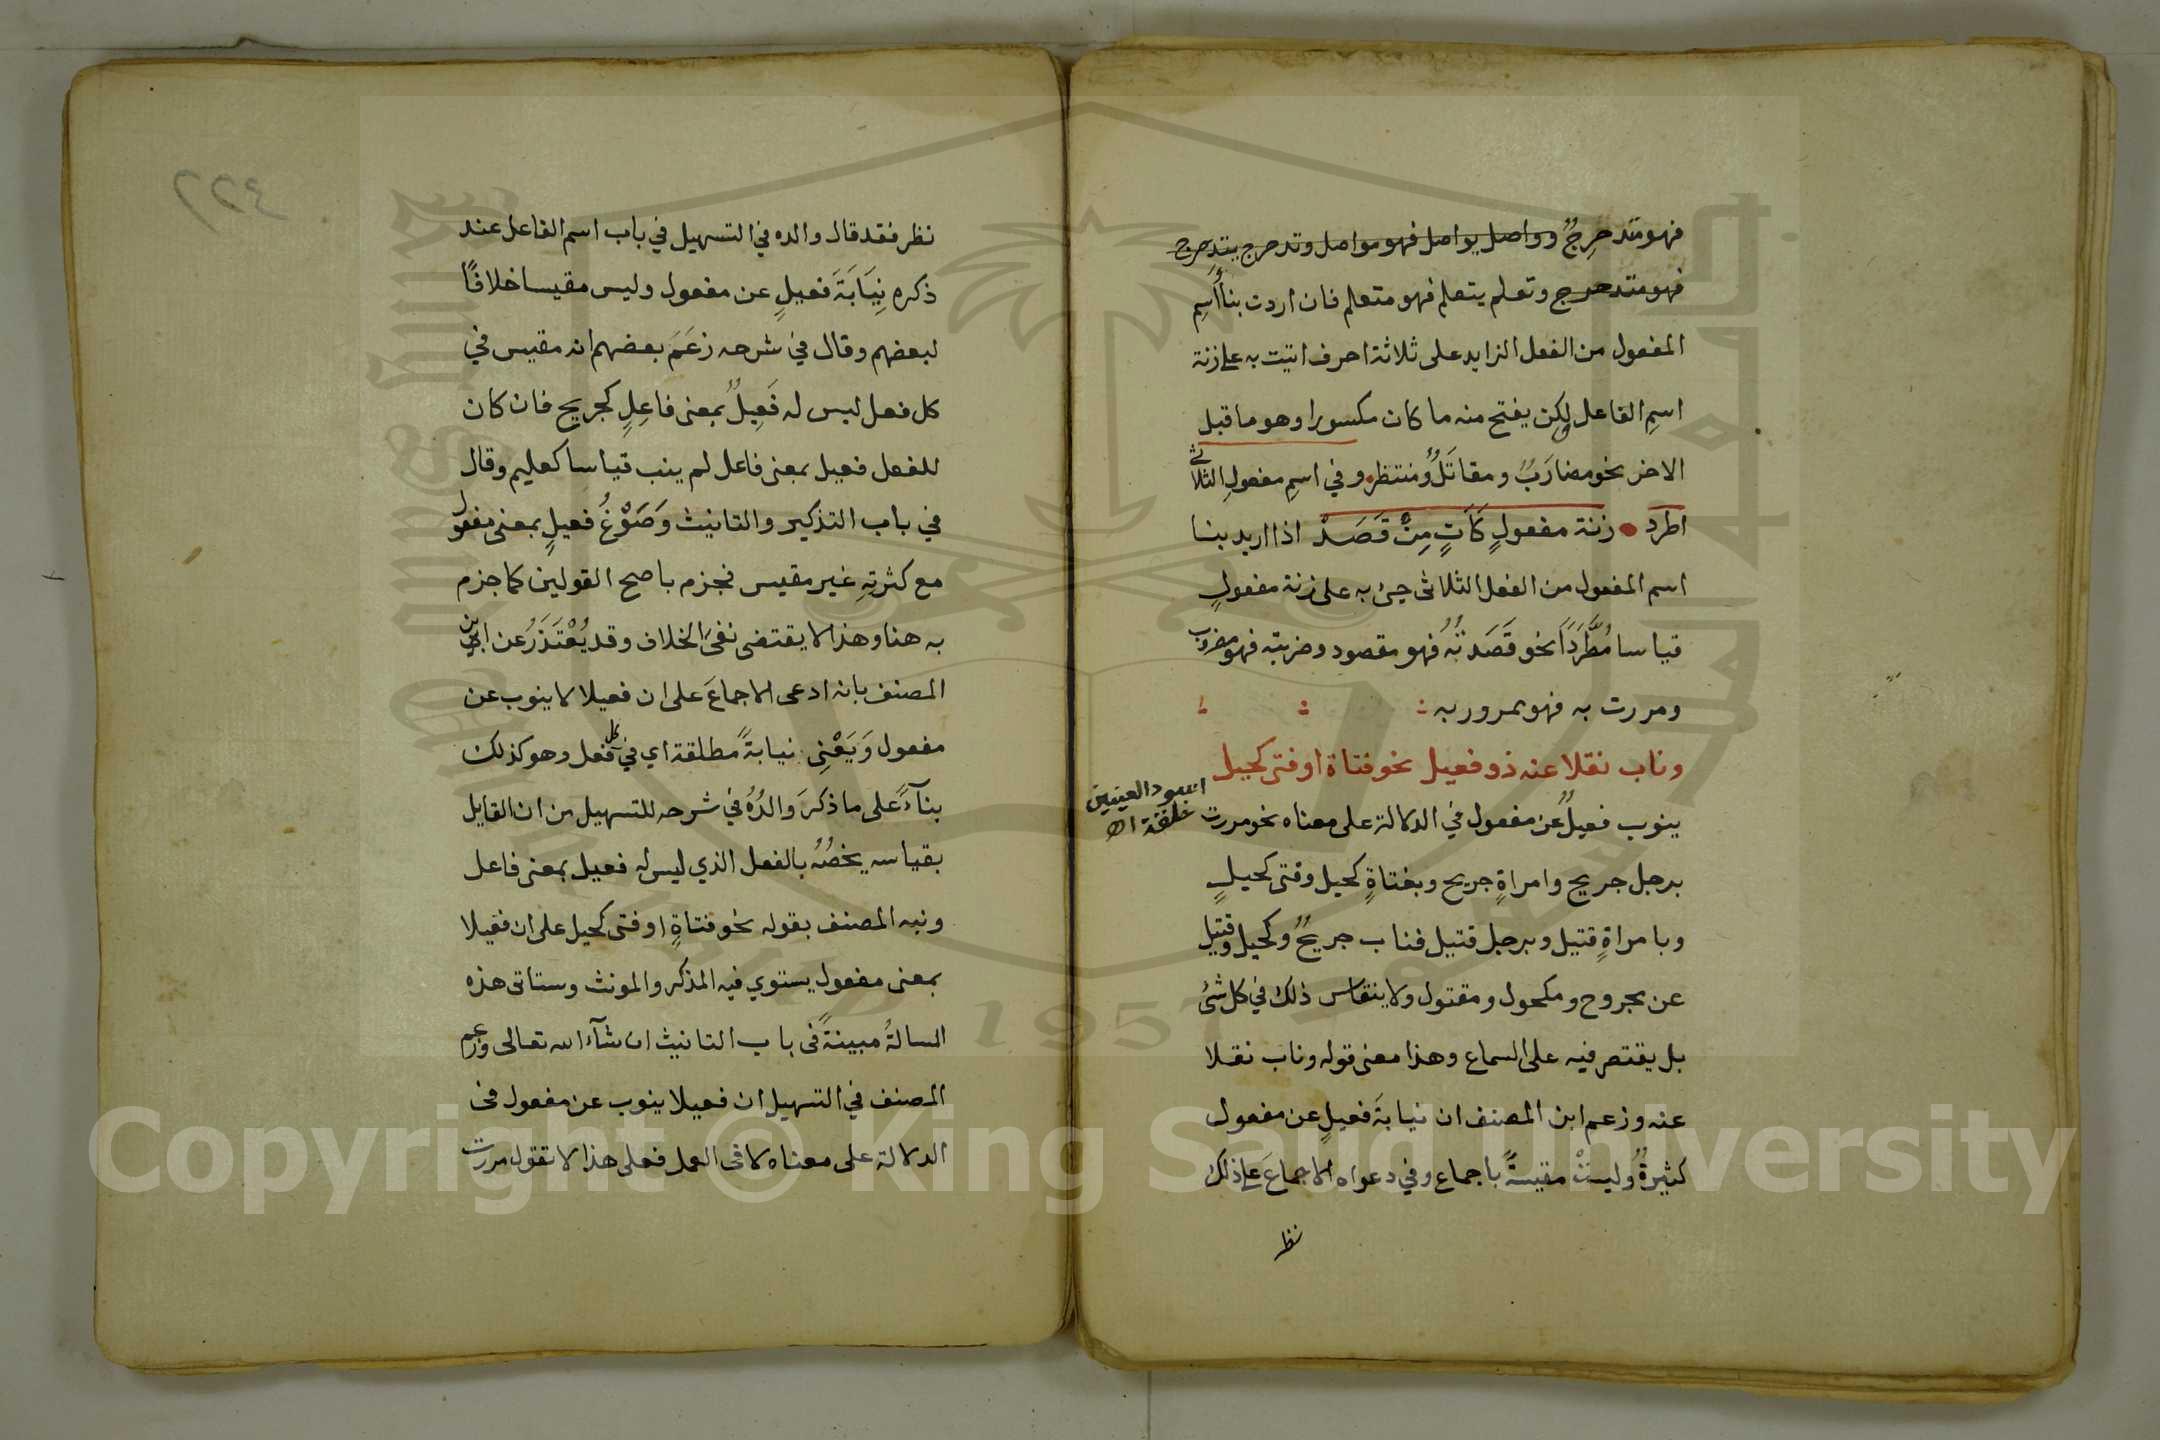 فهو متدحرجٌ وواصل يواصل فهو مواصل وتدحرج يتدحرج
فهو متدحرج وتعلم يتعلم فهو متعلم فان اردت بنا أسمِ
المفعول من الفعل الزايد على ثلاثة احرف اتيت به على زنة
اسمِ الفاعل لكن يفتح منه ما كان مكسورا وهو ما قبل
الاخر نحو مضارَبٌ ومقاتَلٌ ومنتظر وفي اسمِ مفعولِ الثلاثي
اطرد زنة مفعولٍ كَآتٍ مِنْ قَصَدْ اذا اريد بنا
اسم المفعول من الفعل الثلاثى جئ به على زنة مفعولٍ
قياسا مُطَّرَدًا نحو قَصَدتُهُ فهو مقصود وضربته فهو مضروب
ومررت به فهو ممرور به
وناب نقلا عنه ذو فعيل نحو فتاة او فتى كحيل
اسود العينين
خلقة اه
ينوب فعيلٌ عن مفعول في الدلالة على معناه نحو مررت
برجل جريح وامراةٍ جريح وبفتاةٍ كحيل وفتى كحيلٍ
وبامراةٍ قتيل وبرجل قتيل فناب جريحٌ وكحيل وقتيل
عن مجروح ومكحول ومقتول ولا ينقاس ذلك في كل شئ
بل يقتصر فيه على السماع وهذا معنى قوله وناب نقلا
عنه وزعم ابن المصنف ان نيابةَ فعيلٍ عن مفعول
كثيرةٌ وليستْ مقيسةً باجماع وفي دعواه الاجماعَ على ذلك
نظر
نظر فقد قال والده في التسهيل في باب اسم الفاعل عند
ذكره نِيَابَةَ فعيلٍ عن مفعول وليس مقيسا خلافًا
لبعضهم وقال في شرحه زعَمَ بعضهم انه مقيس في
كل فعل ليس له فَعِيلٌ بمعنى فاعِلٍ كجريح فان كان
للفعل فعيل بمعنى فاعل لم ينب قياسا كعليم وقال
في باب التذكير والتانيث وَصَوْغُ فعيلٍ بمعنى مفعول
مع كثرتِهِ غير مقيس فجزم باصح القولين كما جزم
به هنا وهذا لا يقتضى نفىَ الخلاف وقد يُعْتَذَرُ عن ابن
المصنف بانه ادعى الاجماعَ على ان فعيلا لا ينوب عن
مفعول وَيَعْنِى نيابةً مطلقة اي في كل فعل وهو كذلك
بنآءً على ما ذكرَ والدُهُ في شرحه للتسهيل من ان القايل
بقياسه يخصُهُ بالفعل الذي ليس له فعيل بمعنى فاعل
ونبه المصنف بقوله نحو فتاةٍ او فتى كحيل على ان فعيلا
بمعنى مفعول يستوي فيه المذكر والمونث وستاتى هذه
المسالةُ مبينةً فى باب التانيث ان شآء الله تعالى وزعم
المصنف في التسهيل ان فعيلا ينوب عن مفعول فى
الدلالة على معناه لا فى العمل فعلى هذا لا تقول مررت
1957
Copyright © King Saud University